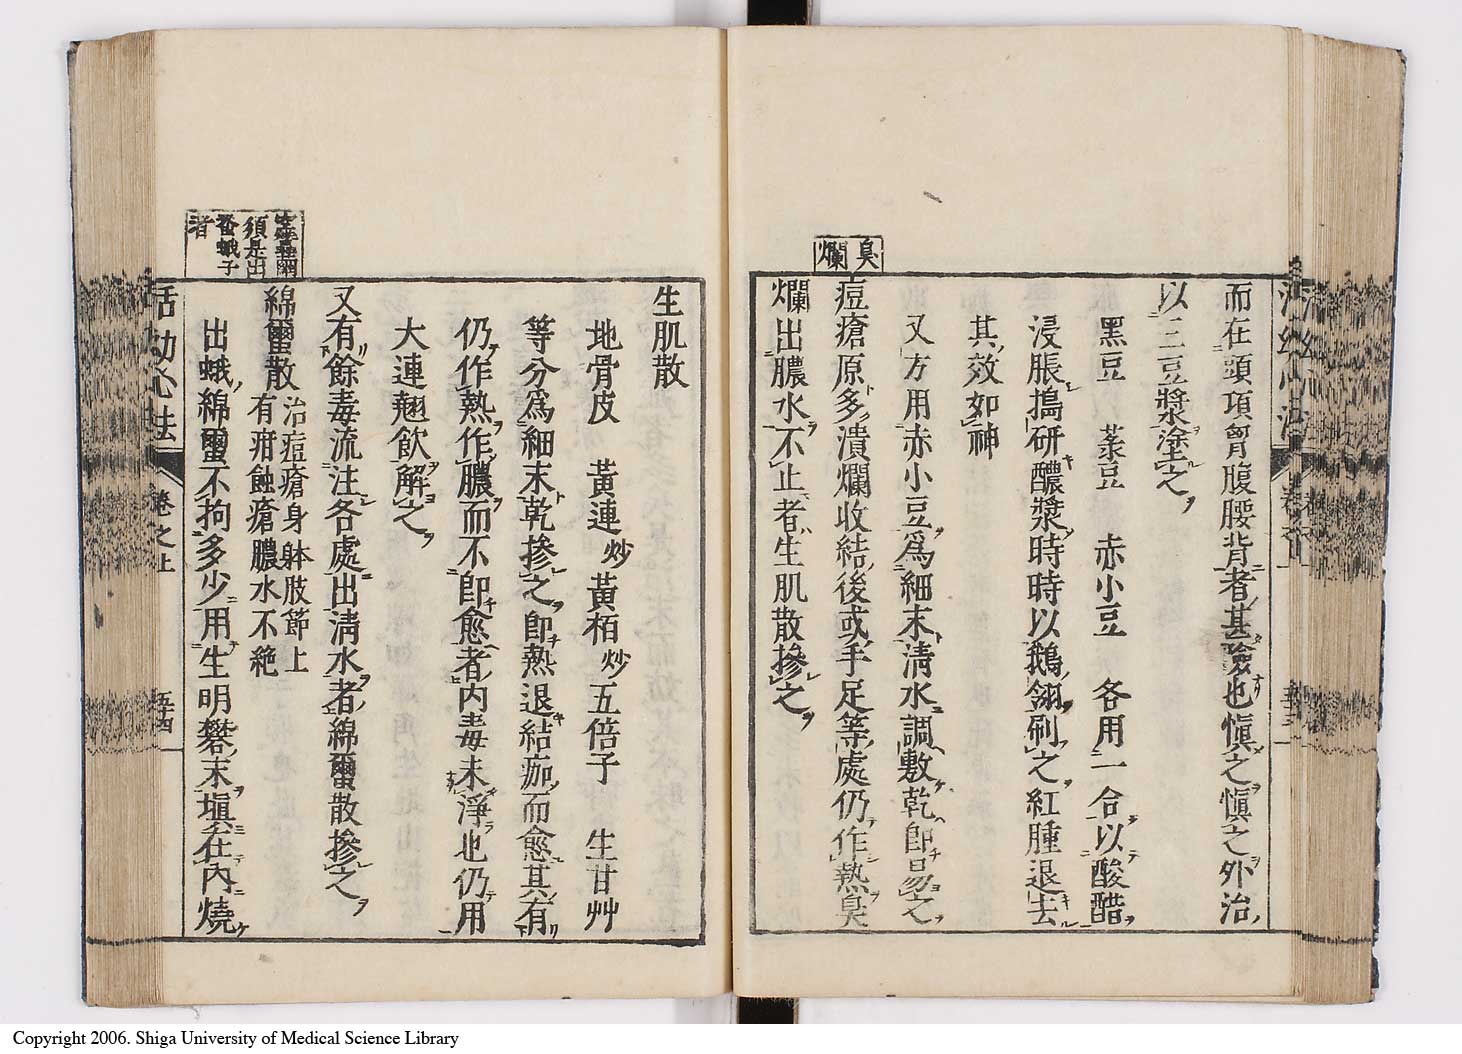 臭
爛
而在頭項胷腹腰背者甚險也愼之愼之外治
以三豆漿塗之
黑豆 菉豆 赤小豆 各用一合以酸醋
浸脹搗研醲漿時時以鵝翎刷之紅腫退去
其效如神
又方用赤小豆爲細末淸水調敷乾卽昜之
痘瘡原多潰爛收結後或手足等處仍作熱臭
爛出膿水不止者生肌散摻之
生肌散
地骨皮 黃連炒 黃栢炒 五倍子 生甘艸
等分爲細末乾摻之卽熱退結痂而愈其有
仍作熱作膿而不卽愈者內毒未淨也仍用
大連翹飮解之
又有餘毒流注各處出淸水者綿蠒散摻之
須是出
蚕蛾子
者
綿蠒散 治痘瘡身躰肢節上
有疳蝕瘡膿水不絶
出蛾綿蠒不拘多少用生明礬末塡在內燒
活幼心法 卷之上 五十四